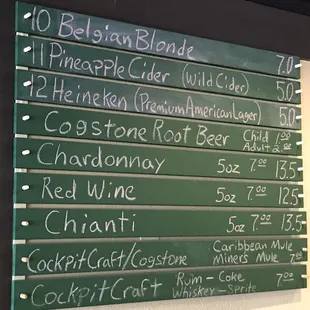 10 Belgian Blonde 7.0
11 Pineapple Cider (Wild Cider) 5.0
12 Heineken (Premium American Lager) 5.0
Cogstone Root Beer Child 1.00
Adult 2.00
Chardonnay 5oz 7.00 13.5
Red Wine 5oz 7.00 12.5
Chianti 5oz 7.00 13.5
CockpitCraft/Cogstone Caribbean Mule
Miners Mule 7.00
CockpitCraft Rum - Coke
Whiskey - Sprite 7.00